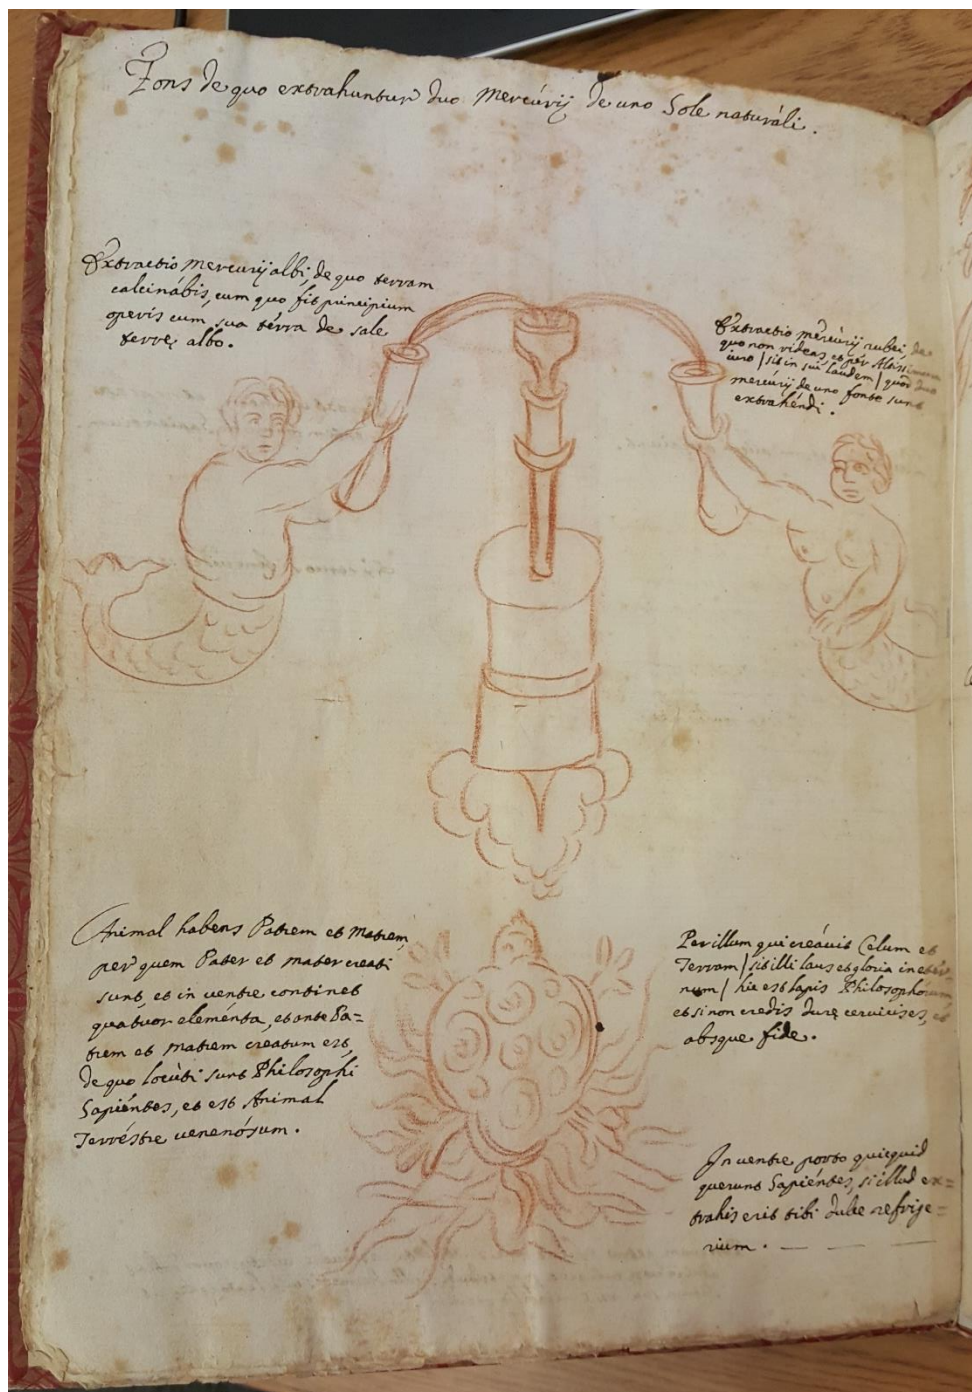 Fons de quo extrahuntur duo Mercúrij de uno Sole naturáli.
Extractio mercurij albi, de quo terram
calcinábis, cum quo fit principium
operis cum sua térra de sale
terrę albo.
Extractio mercúrij rubei, de
quo non rideas, et per Altissimum
iuro / sit in sui laudem / quod duo
mercúrij de uno fonte sunt
extrahéndi.
Animal habens Patrem et Matrem,
per quem Pater et mater creati
sunt, et in uentre continet
quatuor eleménta, et ante Pa=
trem et Matrem creatum est,
de quo locúti sunt Philosophi
Sapiéntes, et est Animal
Terréstre uenenósum.
Per illum qui creáuit Celum et
Terram / sit illi laus et gloria in etér-
num / hic est lapis Philosophórum
et si non credis durę ceruicis es, et
absque fide.
In uentre porto quicquid
querunt Sapiéntes, si illud ex=
trahis erit tibi dulce refrige=
rium. — — —